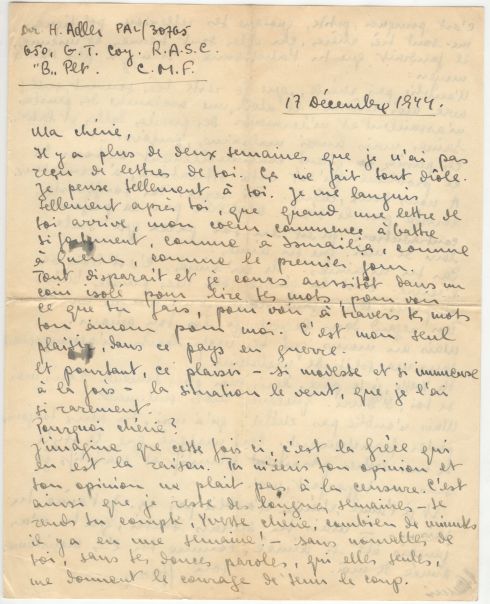 Dr H. Adler PAL/30765
650, G. T. Coy. R.A.S.C.
"B" Plt. C.M.F.
17 Décembre 1944.
Ma chérie,
Il y a plus de deux semaines que je n'ai pas
reçu de lettres de toi. Ça me fait tout drôle.
Je pense tellement à toi. Je me languis
tellement après toi, que quand une lettre de
toi arrive, mon coeur commence à battre
si fortement, comme à Ismailia, comme
à comme le premier jour.
Tout disparait et je cours aussitôt dans un
coin isolé pour lire tes mots, pour voir
ce que tu fais, pour voir à travers tes mots
ton amour pour moi. C'est mon seul
plaisir, dans ce pays en guerre.
Et pourtant, ce plaisir - si modeste et si immense
à la fois - la situation le veut, que je l'ai
si rarement.
Pourquoi chérie?
J'imagine que cette fois ci, c'est la Grèce qui
en est la raison. Tu m'écris ton opinion et
ton opinion ne plait pas à la censure. C'est
ainsi que je reste des longues semaines - te
rends tu compte, chérie, combien de minutes
il y a en une semaine! - sans nouvelles de
toi, sans tes douces paroles, qui elles seules,
me donnent le courage de tenir le coup.